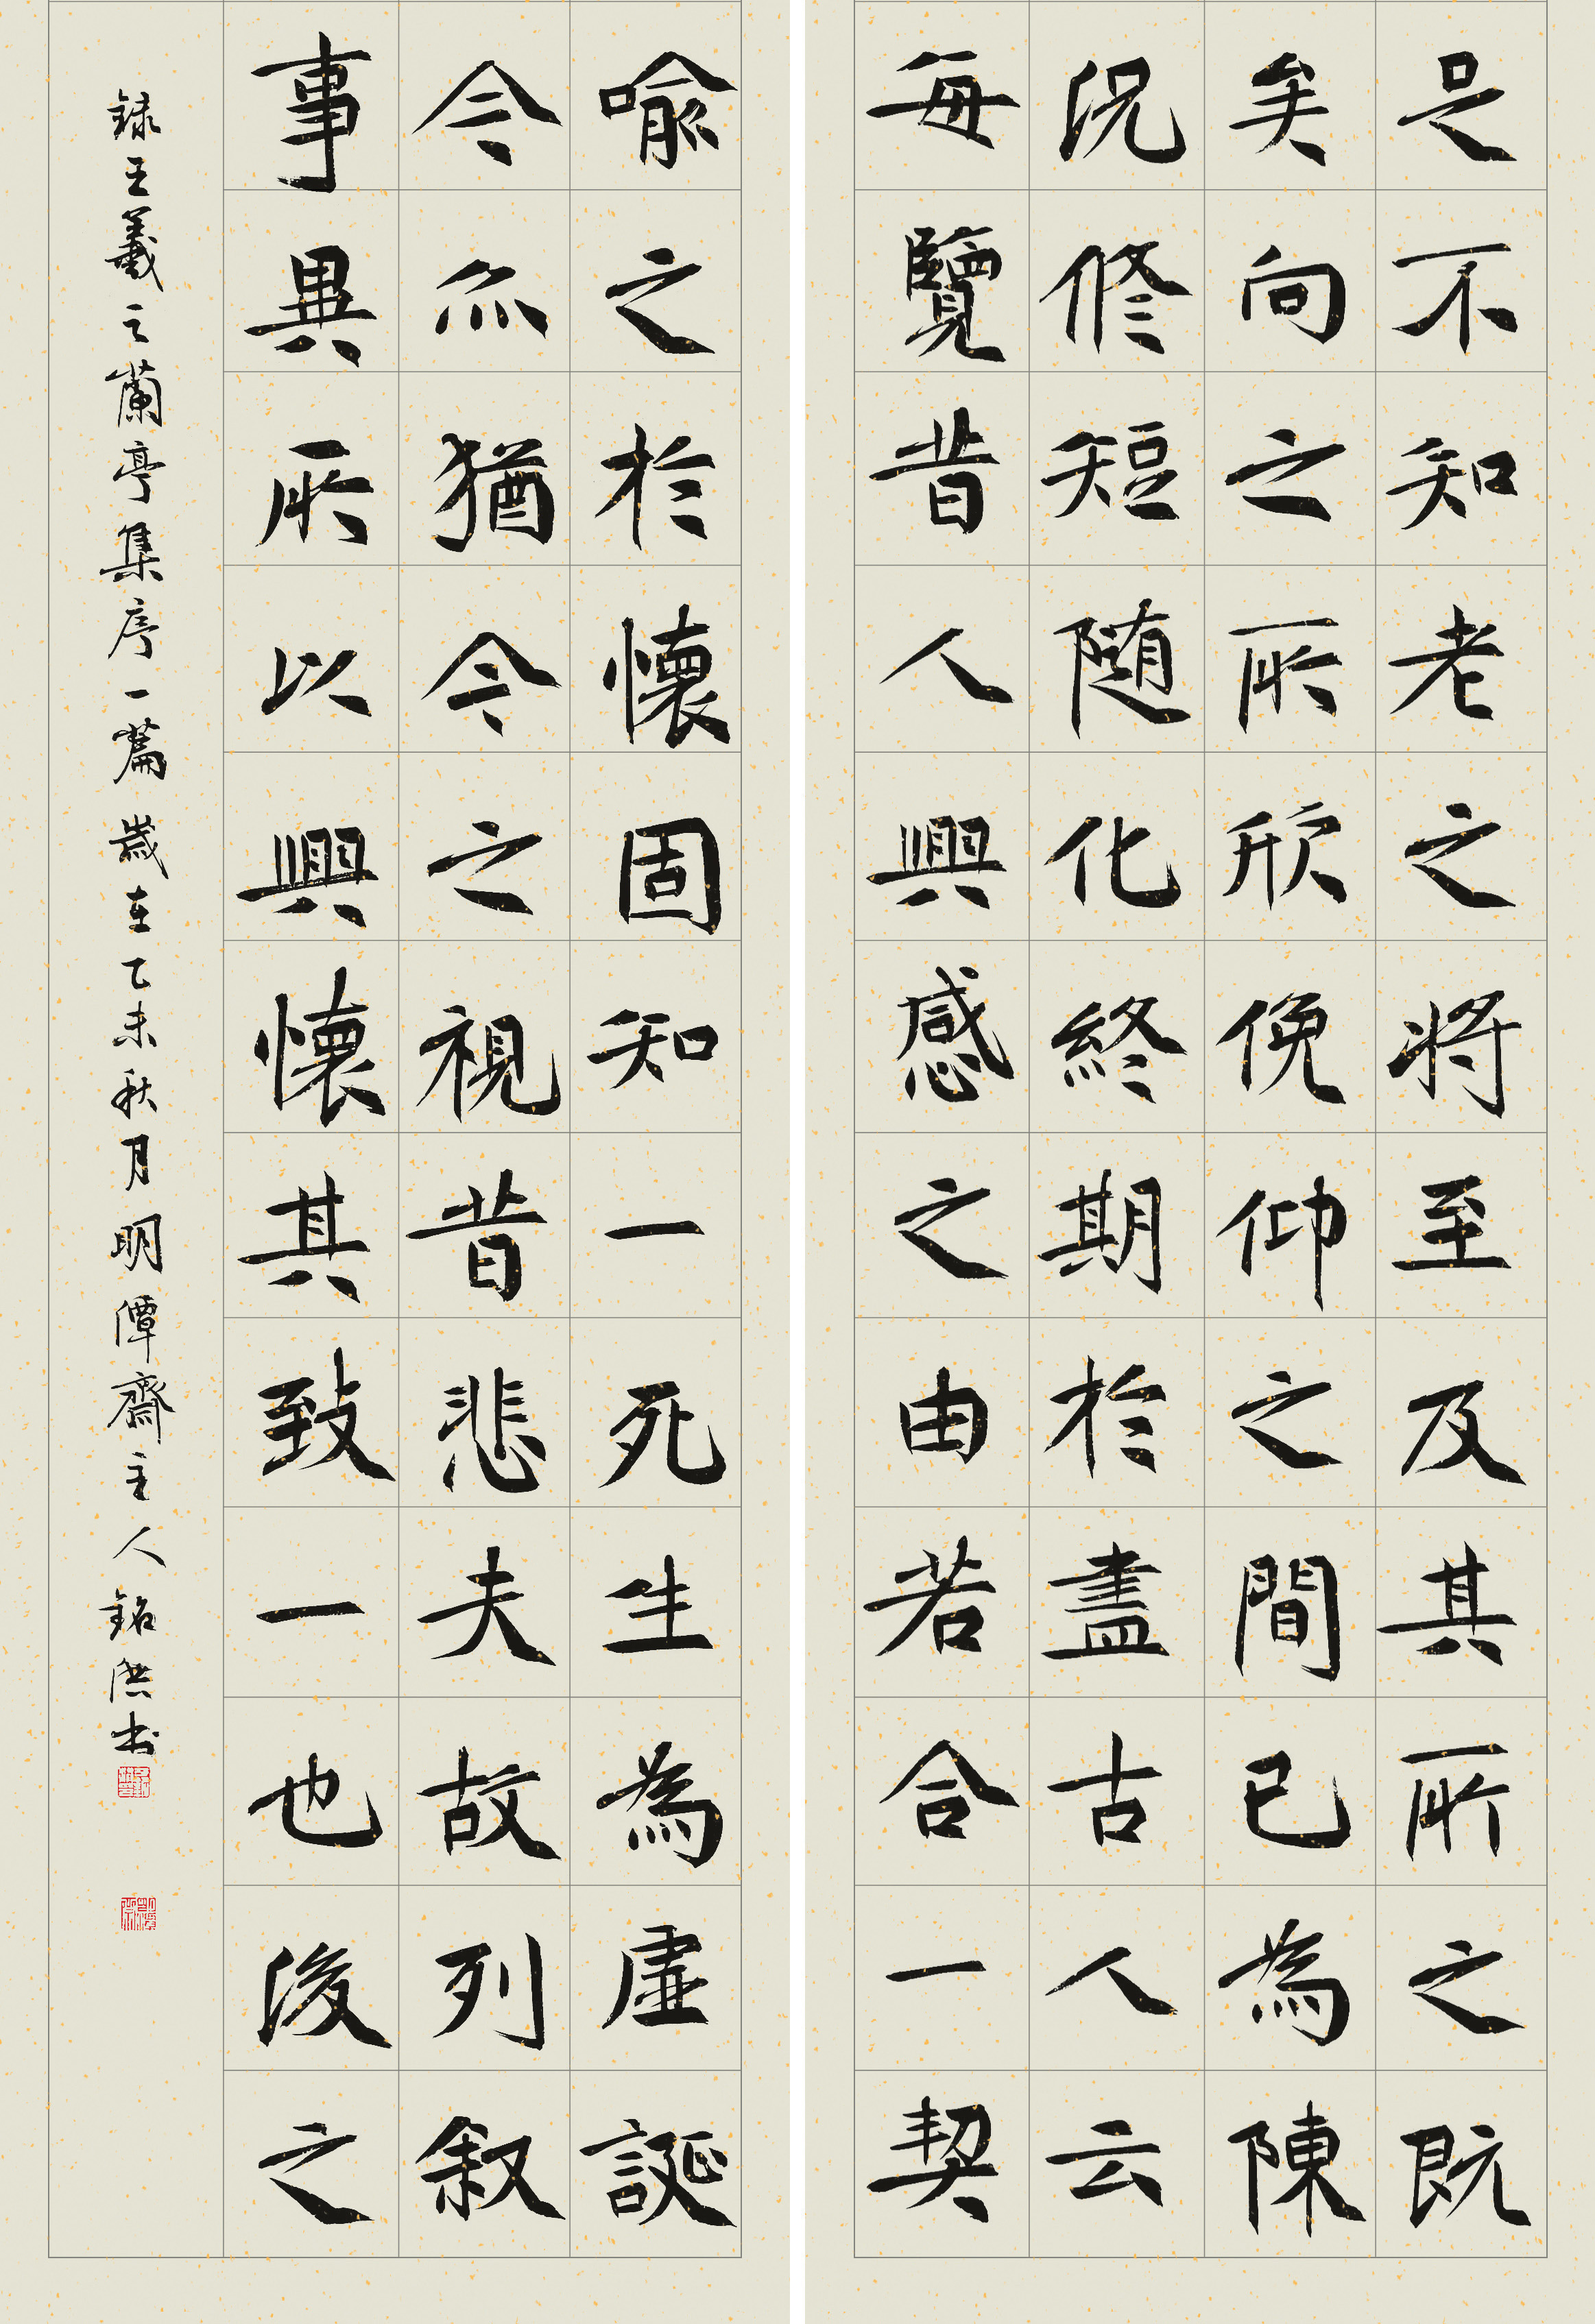 足不知老之將至及其所之既
矣向之所欣俛仰之間已為陳
況修短随化終期於盡古人云
每覽昔人興感之由若合一契
喻之於懷固知一死生為虛誕
今亦猶今之視昔悲夫故列叙
事異所以興懷其致一也後之
錄王羲之蘭亭集序一篇 歲在乙未秋月明潭齋主人銘书